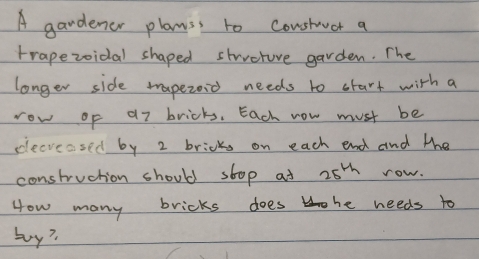 A gardener plans to construct a
trapezoidal shaped structure garden. The
longer side trapezoid needs to start with a
row of 97 bricks. Each row must be
decreased by 2 bricks on each end and the
construction should stop at 25th row.
How many bricks does he needs to
buy?